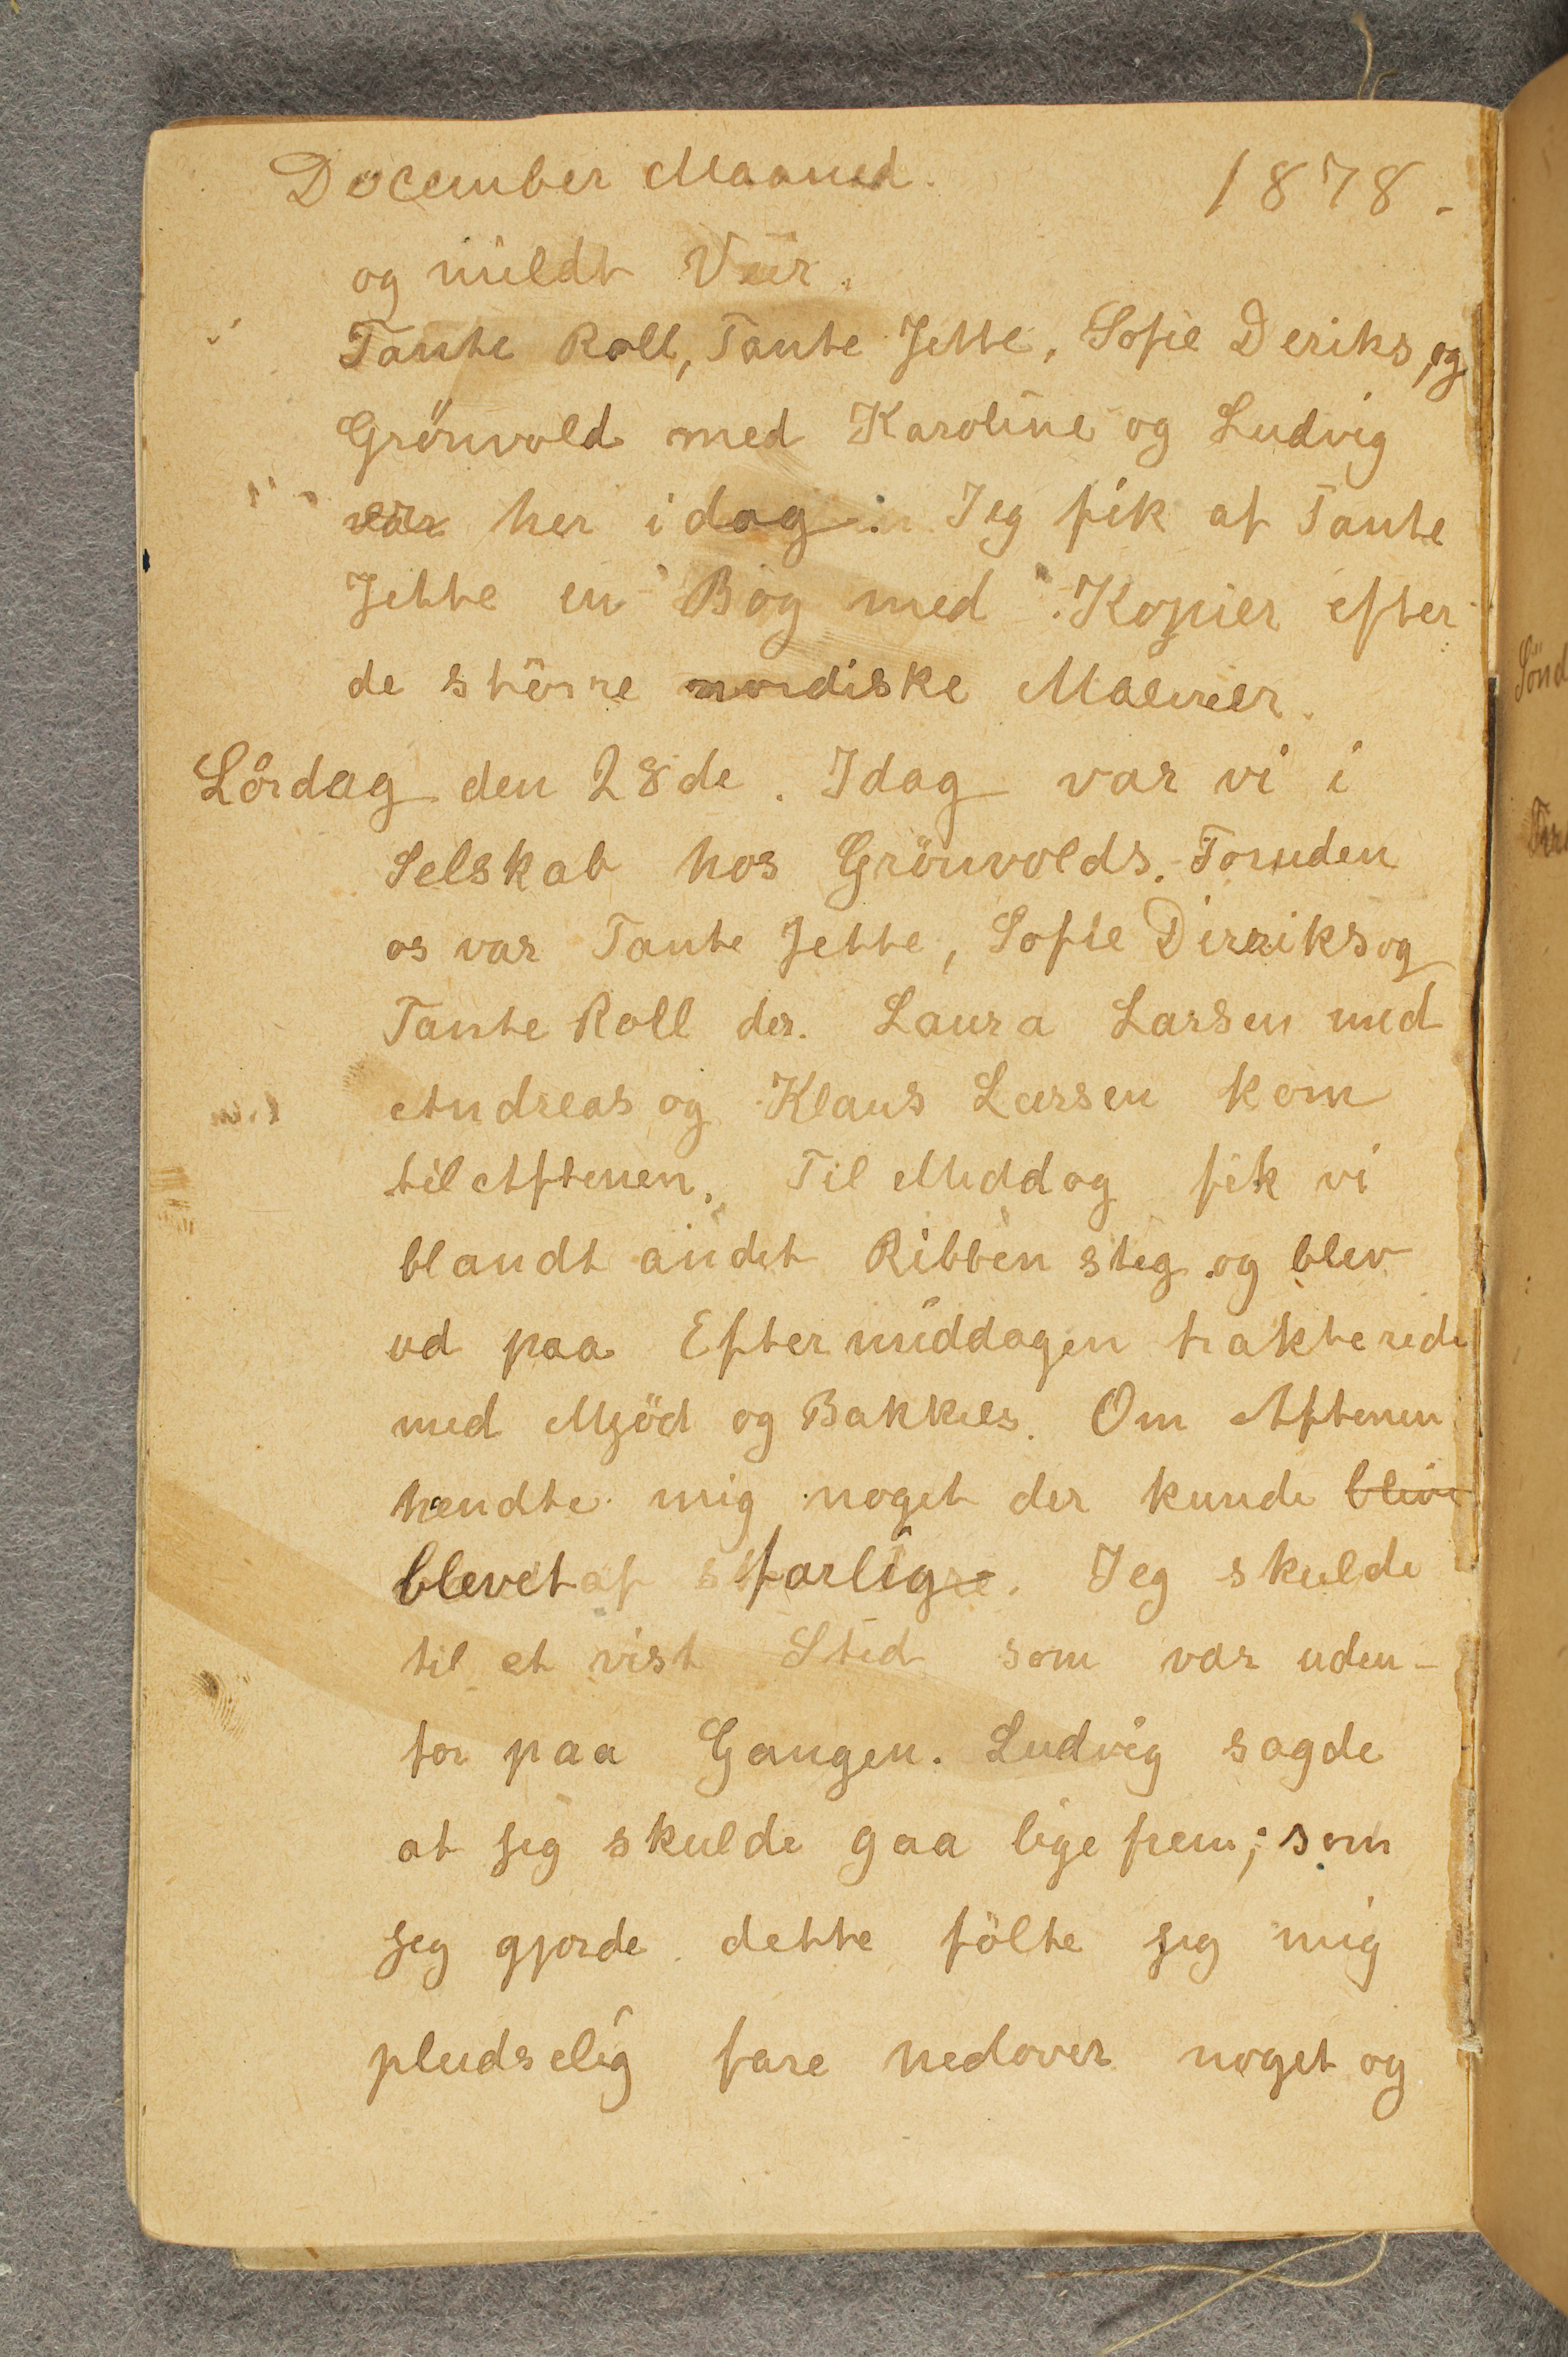 December Maaned. 1878.
og mildt Veir.
Tante Roll, Tante Jette, Sofie Deriks, og
Grönvold med Karoline og Ludvig
var her idag. Jeg fik af Tante
Jette en Bog med Kopier efter
de större nordiske Malerier.
Lördag den 28de. Idag var vi i
Selskab hos Grönvolds. Foruden
os var Tante Jette, Sofie Dirriks og
Tante Roll der. Laura Larsen med
Andreas og Klaus Larsen kom
til Aftenen. Til Middag fik vi
blandt andet Ribben steg og blev
ud paa Eftermiddagen trakterede
med Mjöd og Bakkels. Om Aftenen
hændte mig noget der kunde blive
blevet farlig. Jeg skulde
til et vist Sted som var uden-
for paa Gangen. Ludvig sagde
at jeg skulde gaa lige frem; som
jeg gjorde dette fölte jeg mig
pludselig fare nedover noget og
Sönd